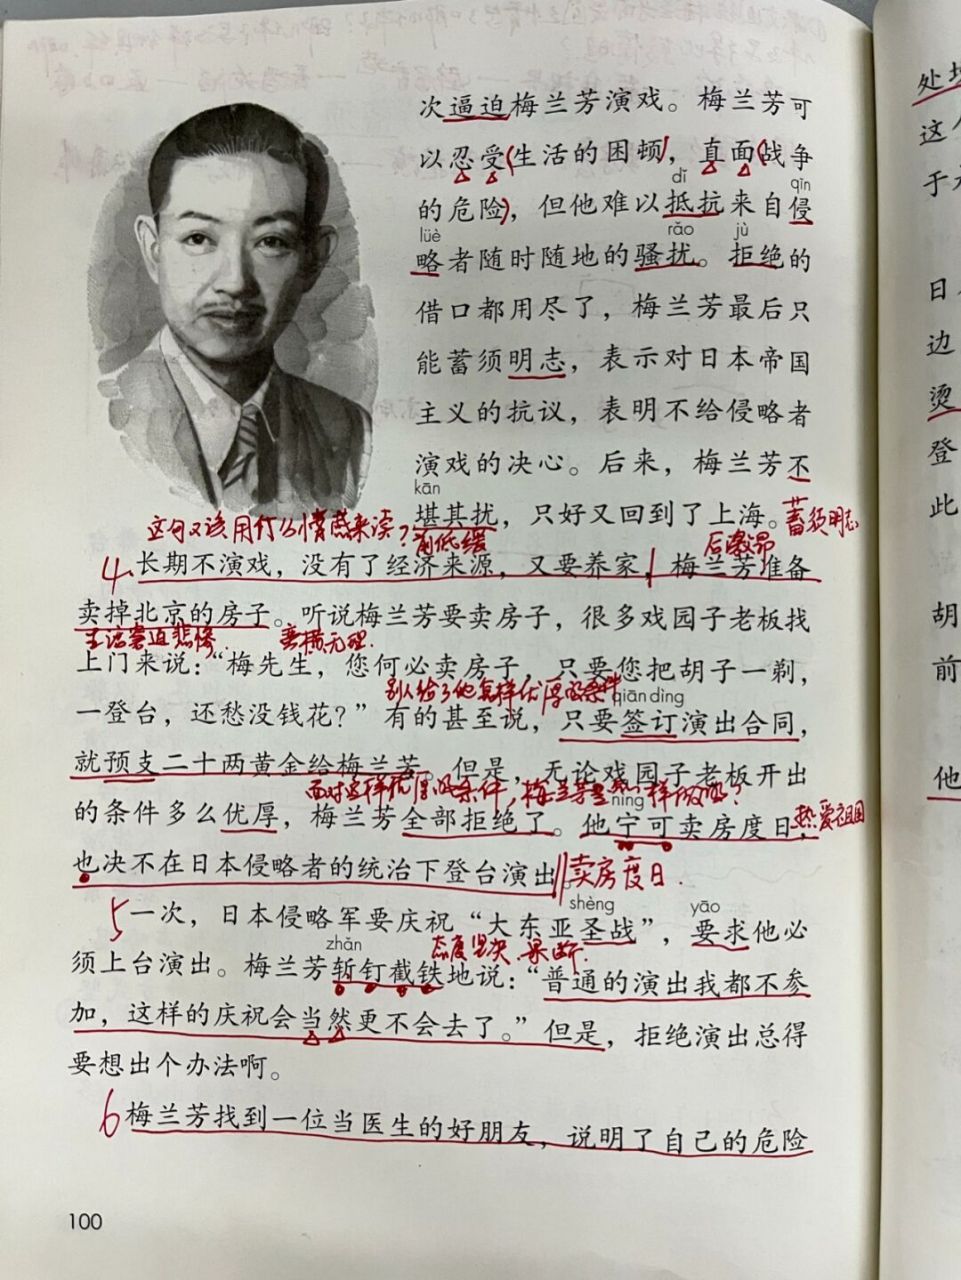 次逼迫梅兰芳演戏。梅兰芳可
以忍受生活的困顿，直面战争
dǐ qīn
的危险，但他难以抵抗来自侵
lüè rǎo jù
略者随时随地的骚扰。拒绝的
借口都用尽了，梅兰芳最后只
能蓄须明志，表示对日本帝国
主义的抗议，表明不给侵略者
演戏的决心。后来，梅兰芳不
kān
堪其扰，只好又回到了上海。
蓄须明志
这句又该用什么情感来读？
前低缓
后激昂
4、长期不演戏，没有了经济来源，又要养家，梅兰芳准备
卖掉北京的房子。听说梅兰芳要卖房子，很多戏园子老板找
生活窘迫悲惨
蛮横无理
上门来说：“梅先生，您何必卖房子，只要您把胡子一剃，
别人给了他怎样优厚的条件
qiān dìng
一登台，还愁没钱花？”有的甚至说，只要签订演出合同，
就预支二十两黄金给梅兰芳。但是，无论戏园子老板开出
面对这样优厚的条件，梅兰芳是怎样做的？
nìng
的条件多么优厚，梅兰芳全部拒绝了。他宁可卖房度日，
热爱祖国
也决不在日本侵略者的统治下登台演出。
卖房度日.
shèng yāo
5 一次，日本侵略军要庆祝“大东亚圣战”，要求他必
zhǎn
态度坚决、果断.
须上台演出。梅兰芳斩钉截铁地说：“普通的演出我都不参
加，这样的庆祝会当然更不会去了。”但是，拒绝演出总得
要想出个办法啊。
6 梅兰芳找到一位当医生的好朋友，说明了自己的危险
100
处
这
于
日
边
烫
登
此
胡
前
他